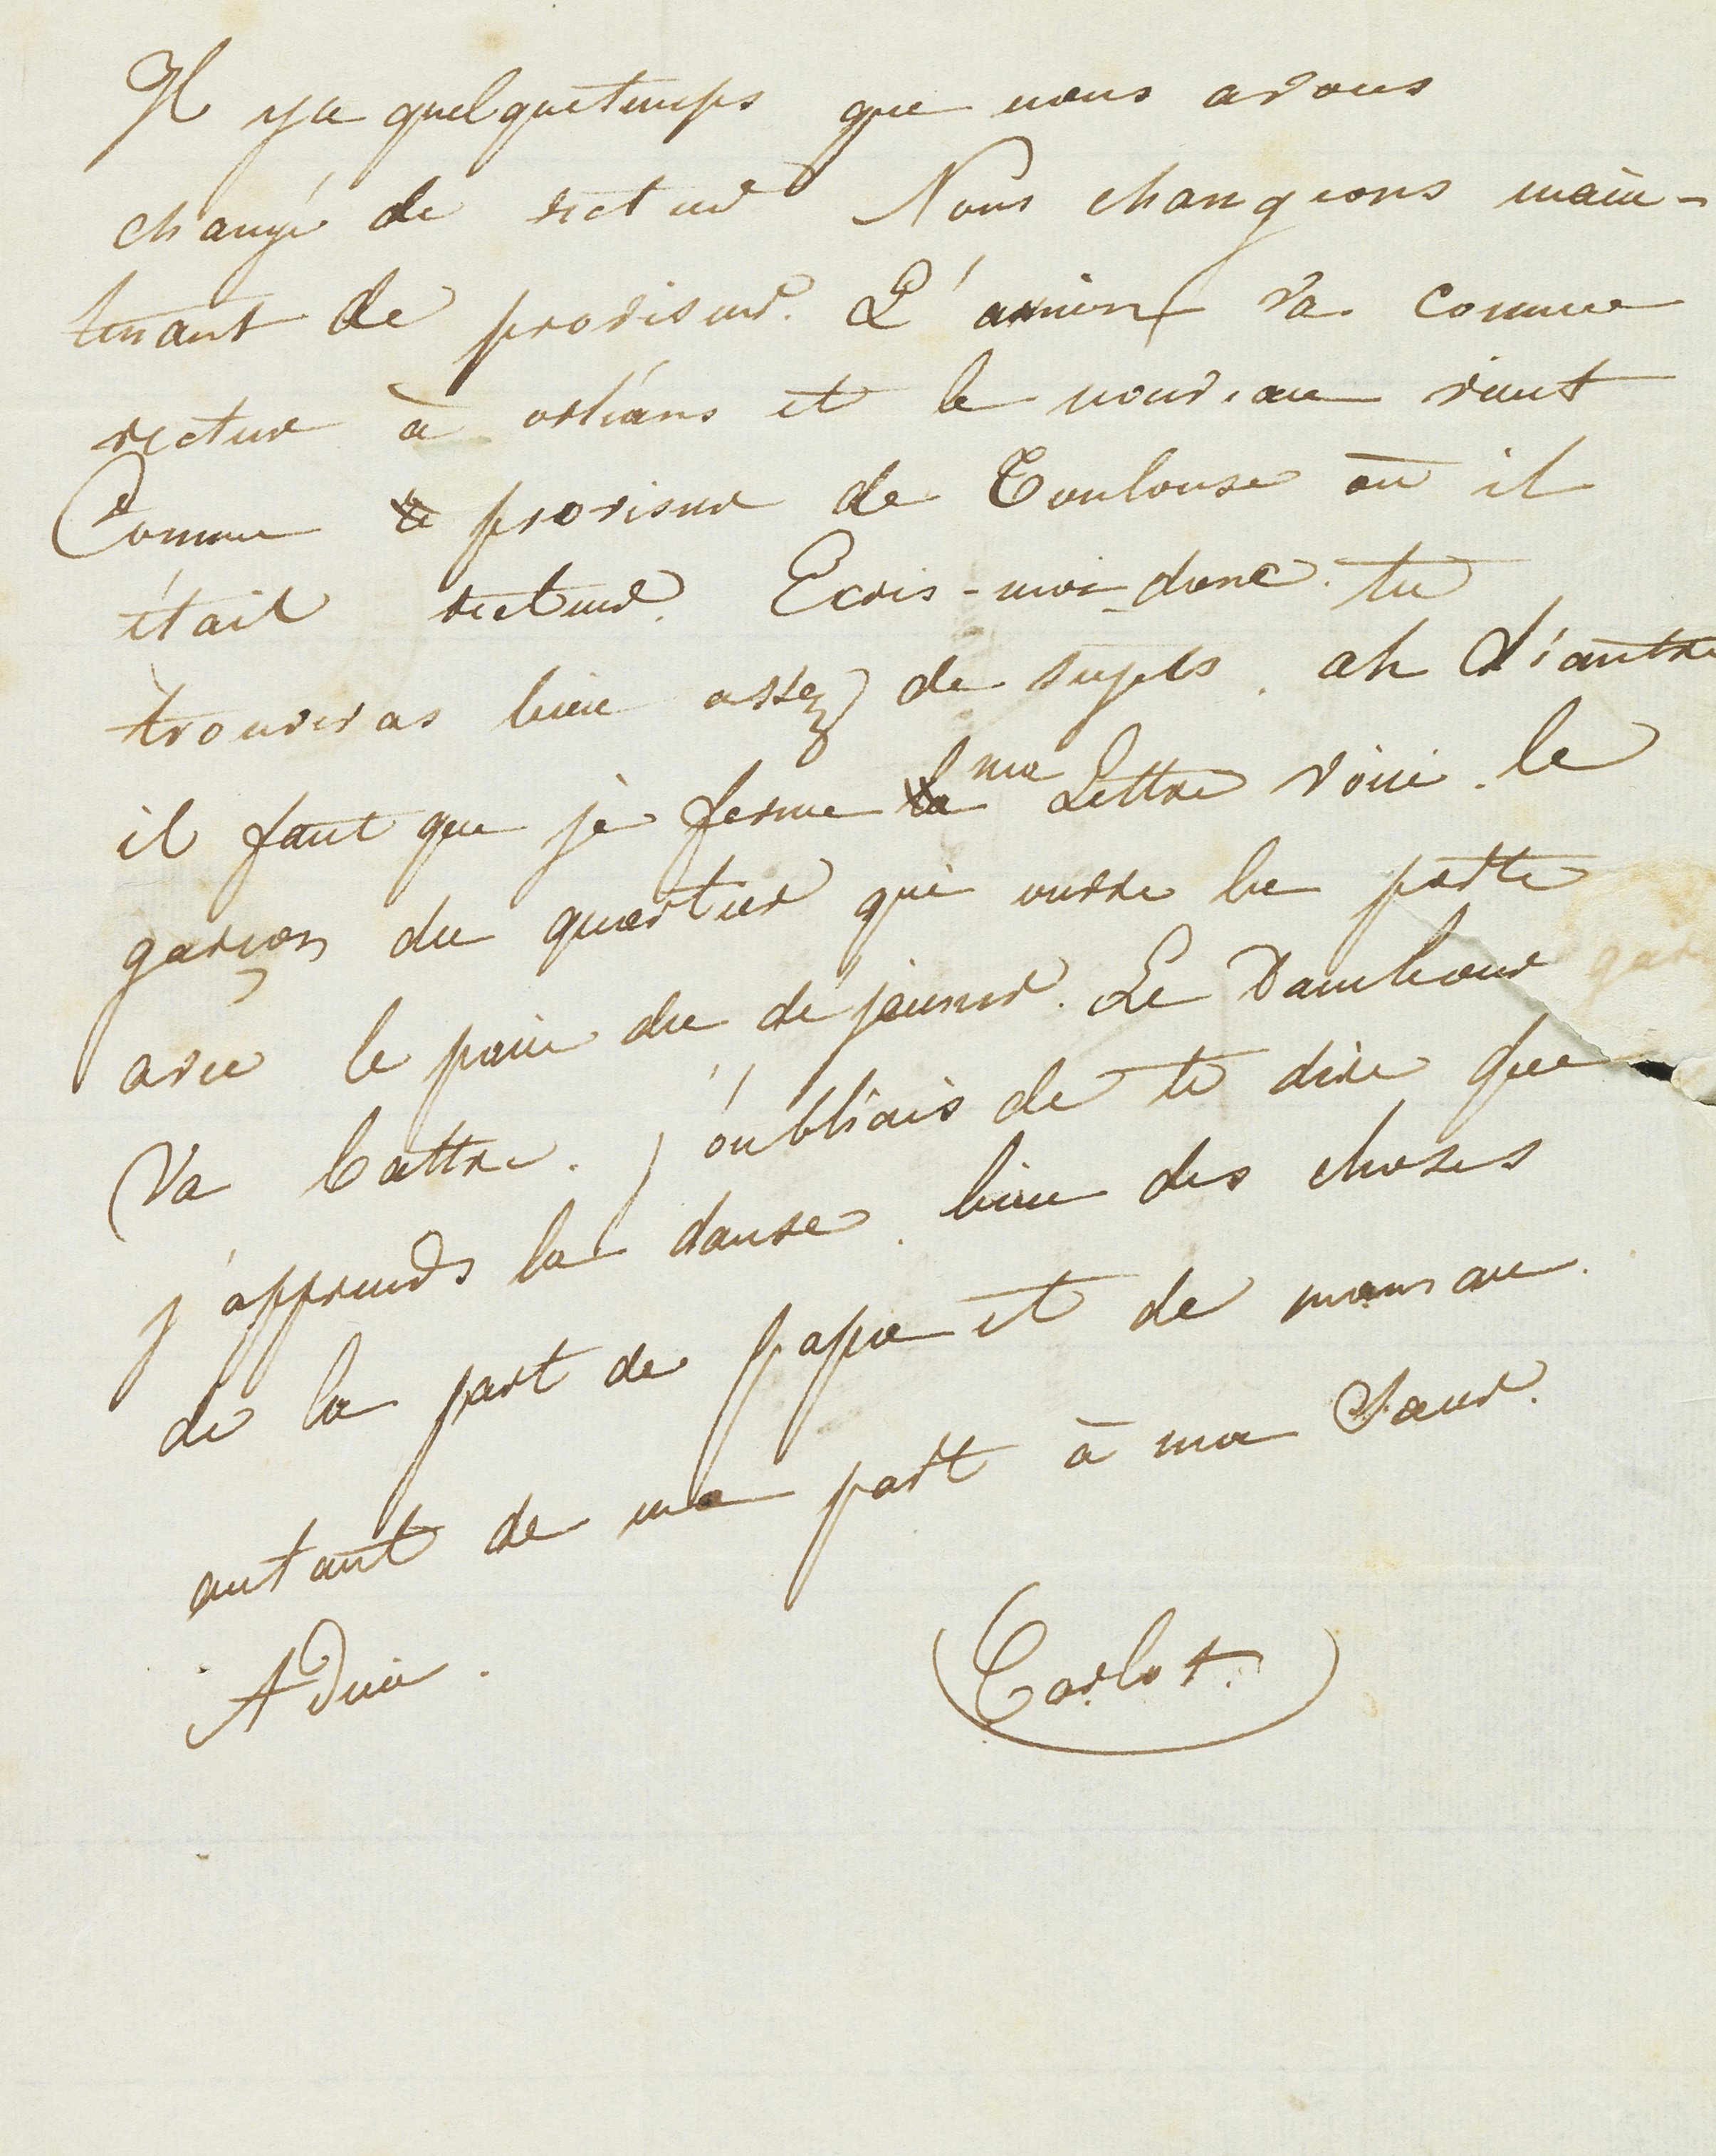 Il y a quelque temps que nous avons
changé de recteur Nous changeons main-
tenant de proviseur. L'ancien va comme
recteur à orléans et le nouveau vient
Comme proviseur de Toulouse où il
était recteur. Ecris-moi donc. tu
trouveras bien assez de sujets. ah
il faut que je ferme ma Lettre voici le
garçon du quartier qui ouvre la porte
avec le pain du déjeuner. Le Tambour
Va battre. j'oubliais de te dire que
j'apprends la danse. bien des choses
de la part de papa et de maman.
autant de ma part à ma Sœur.
Adieu.
Carlot.